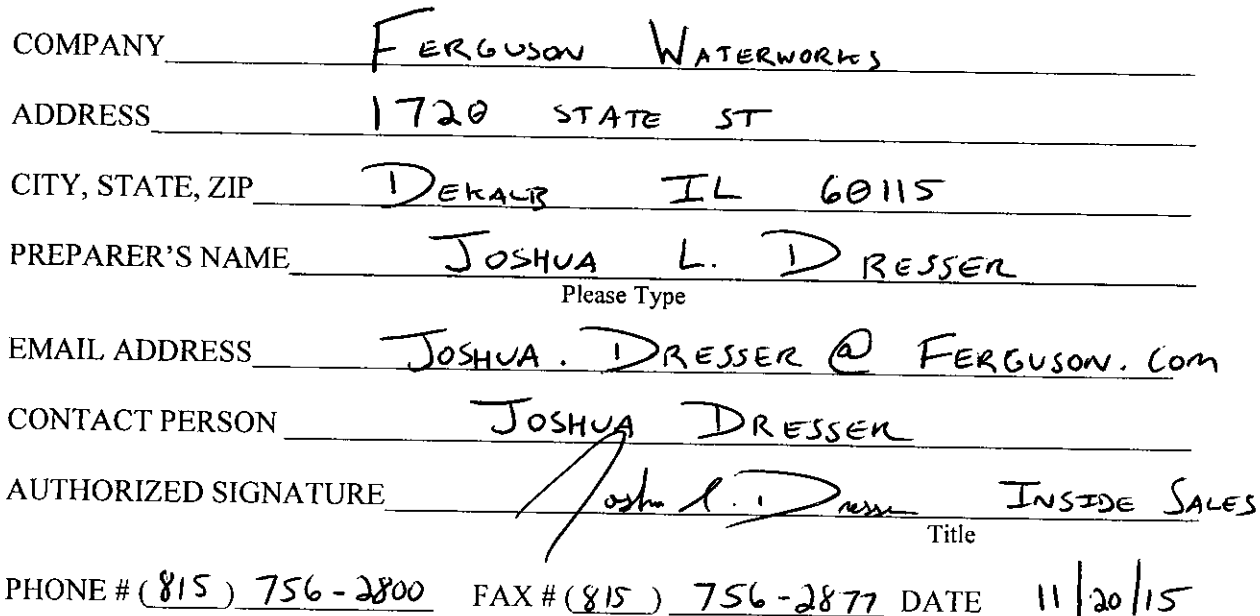 COMPANY FERGUSON WATERWORKS
ADDRESS 1720 STATE ST
CITY, STATE, ZIP DEKALB IL 60115
PREPARER'S NAME JOSHUA L. DRESSER
Please Type
EMAIL ADDRESS JOSHUA.DRESSER@FERGUSON.COM
CONTACT PERSON JOSHUA DRESSER
AUTHORIZED SIGNATURE Joshua L. Dresser INSIDE SALES
Title
PHONE # (815) 756-2800 FAX # (815) 756-2877 DATE 11/20/15